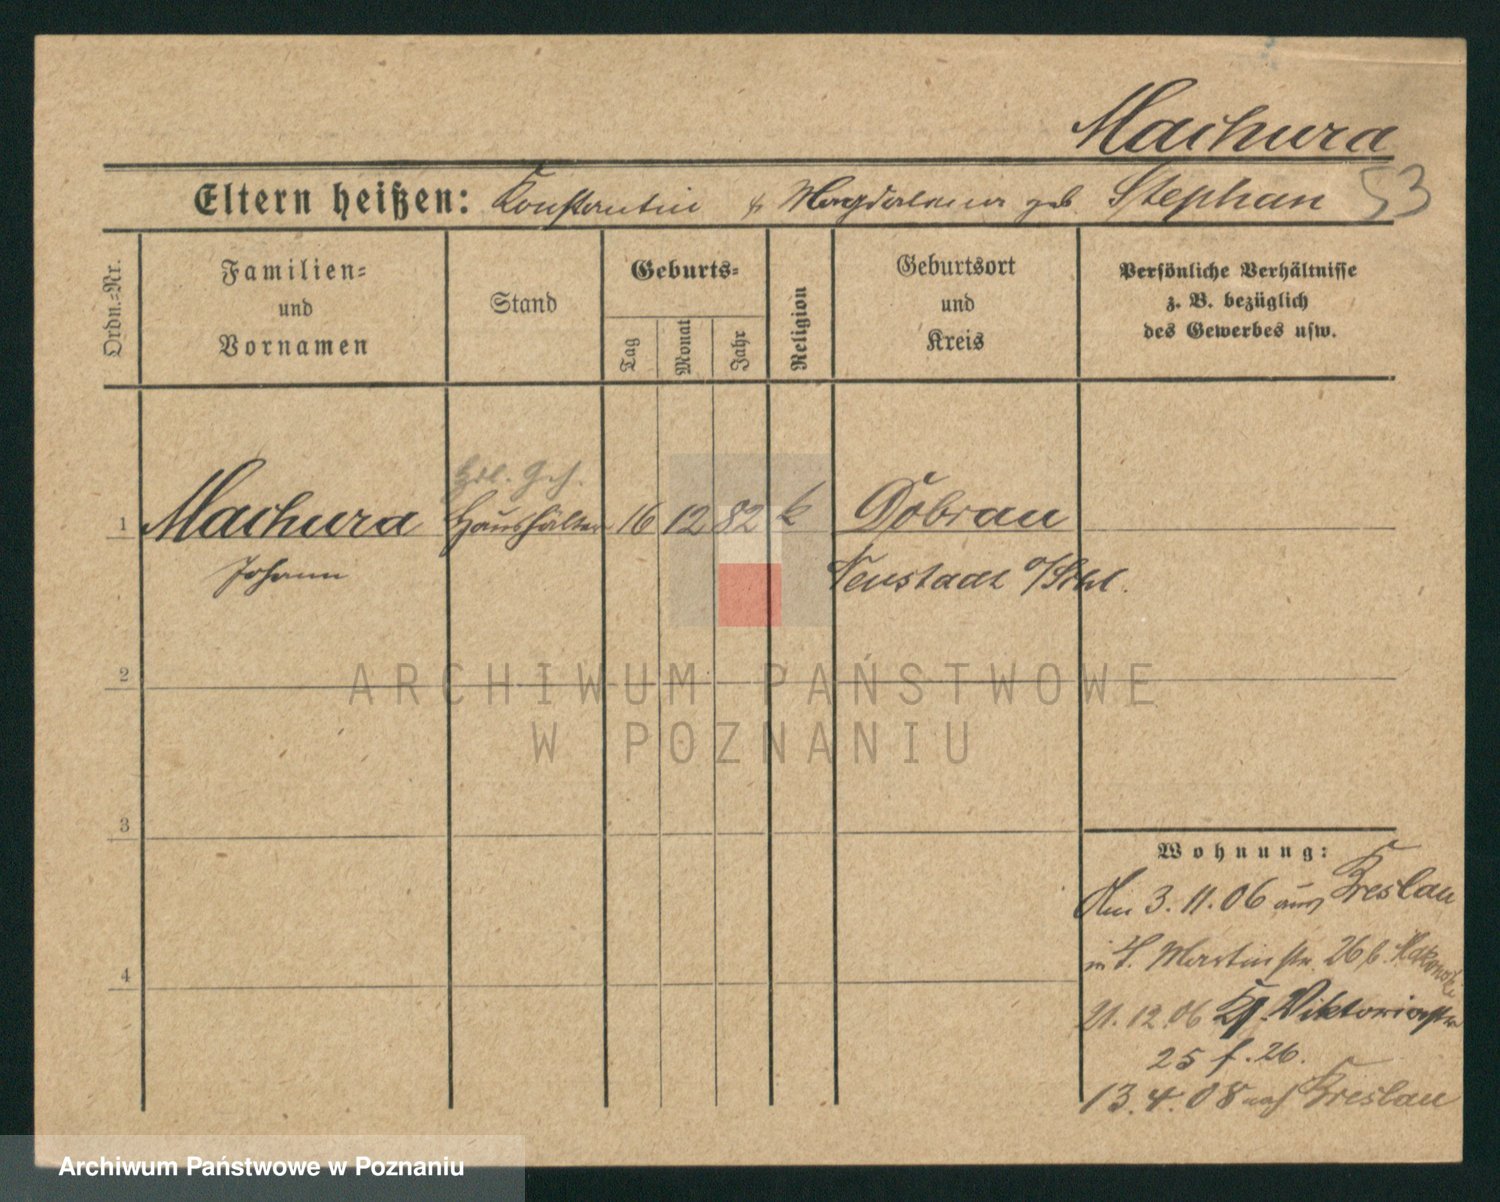 Machura
Eltern heißen: Konstantin & Magdalena geb. Stephan 53
Ordn.-Nr.
Familien-
und
Vornamen
Stand
Geburts-
Tag
Monat
Jahr
Religion
Geburtsort
und
Kreis
Persönliche Verhältnisse
z. B. bezüglich
des Gewerbes usw.
Hdl. Geh.
1 Machura Haushälter 16 12 82 k Dobrau
Johann Neustadt O/Schl.
2
ARCHIWUM PAŃSTWOWE
W POZNANIU
3
Wohnung:
Am 3. 11. 06 aus Breslau
in St. Martinstr. 26 b.
21. 12. 06 Viktoriastr
25 f. 26.
13. 4. 08 nach Breslau
4
Archiwum Państwowe w Poznaniu